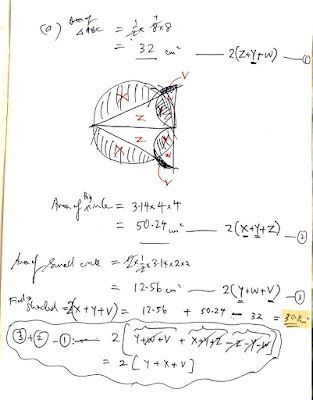 (a) Area of ΔABC = 1/2 × 8 × 8
= 32 cm² —— 2(Z+Y+W) —①
V
X
Z
Z
X
V
Area of Big circle = 3.14×4×4
= 50.24 cm² —— 2(X+Y+Z) —②
Area of Small circle = 2×1/2×3.14×2×2
= 12.56 cm² —— 2(Y+W+V) —③
Shaded = 2(X+Y+V) = 12.56 + 50.24 − 32 = 30.8 cm²
③+② −①:— 2[Y+W+V + X+Y+Z −Z −Y−W]
= 2[Y+X+V]